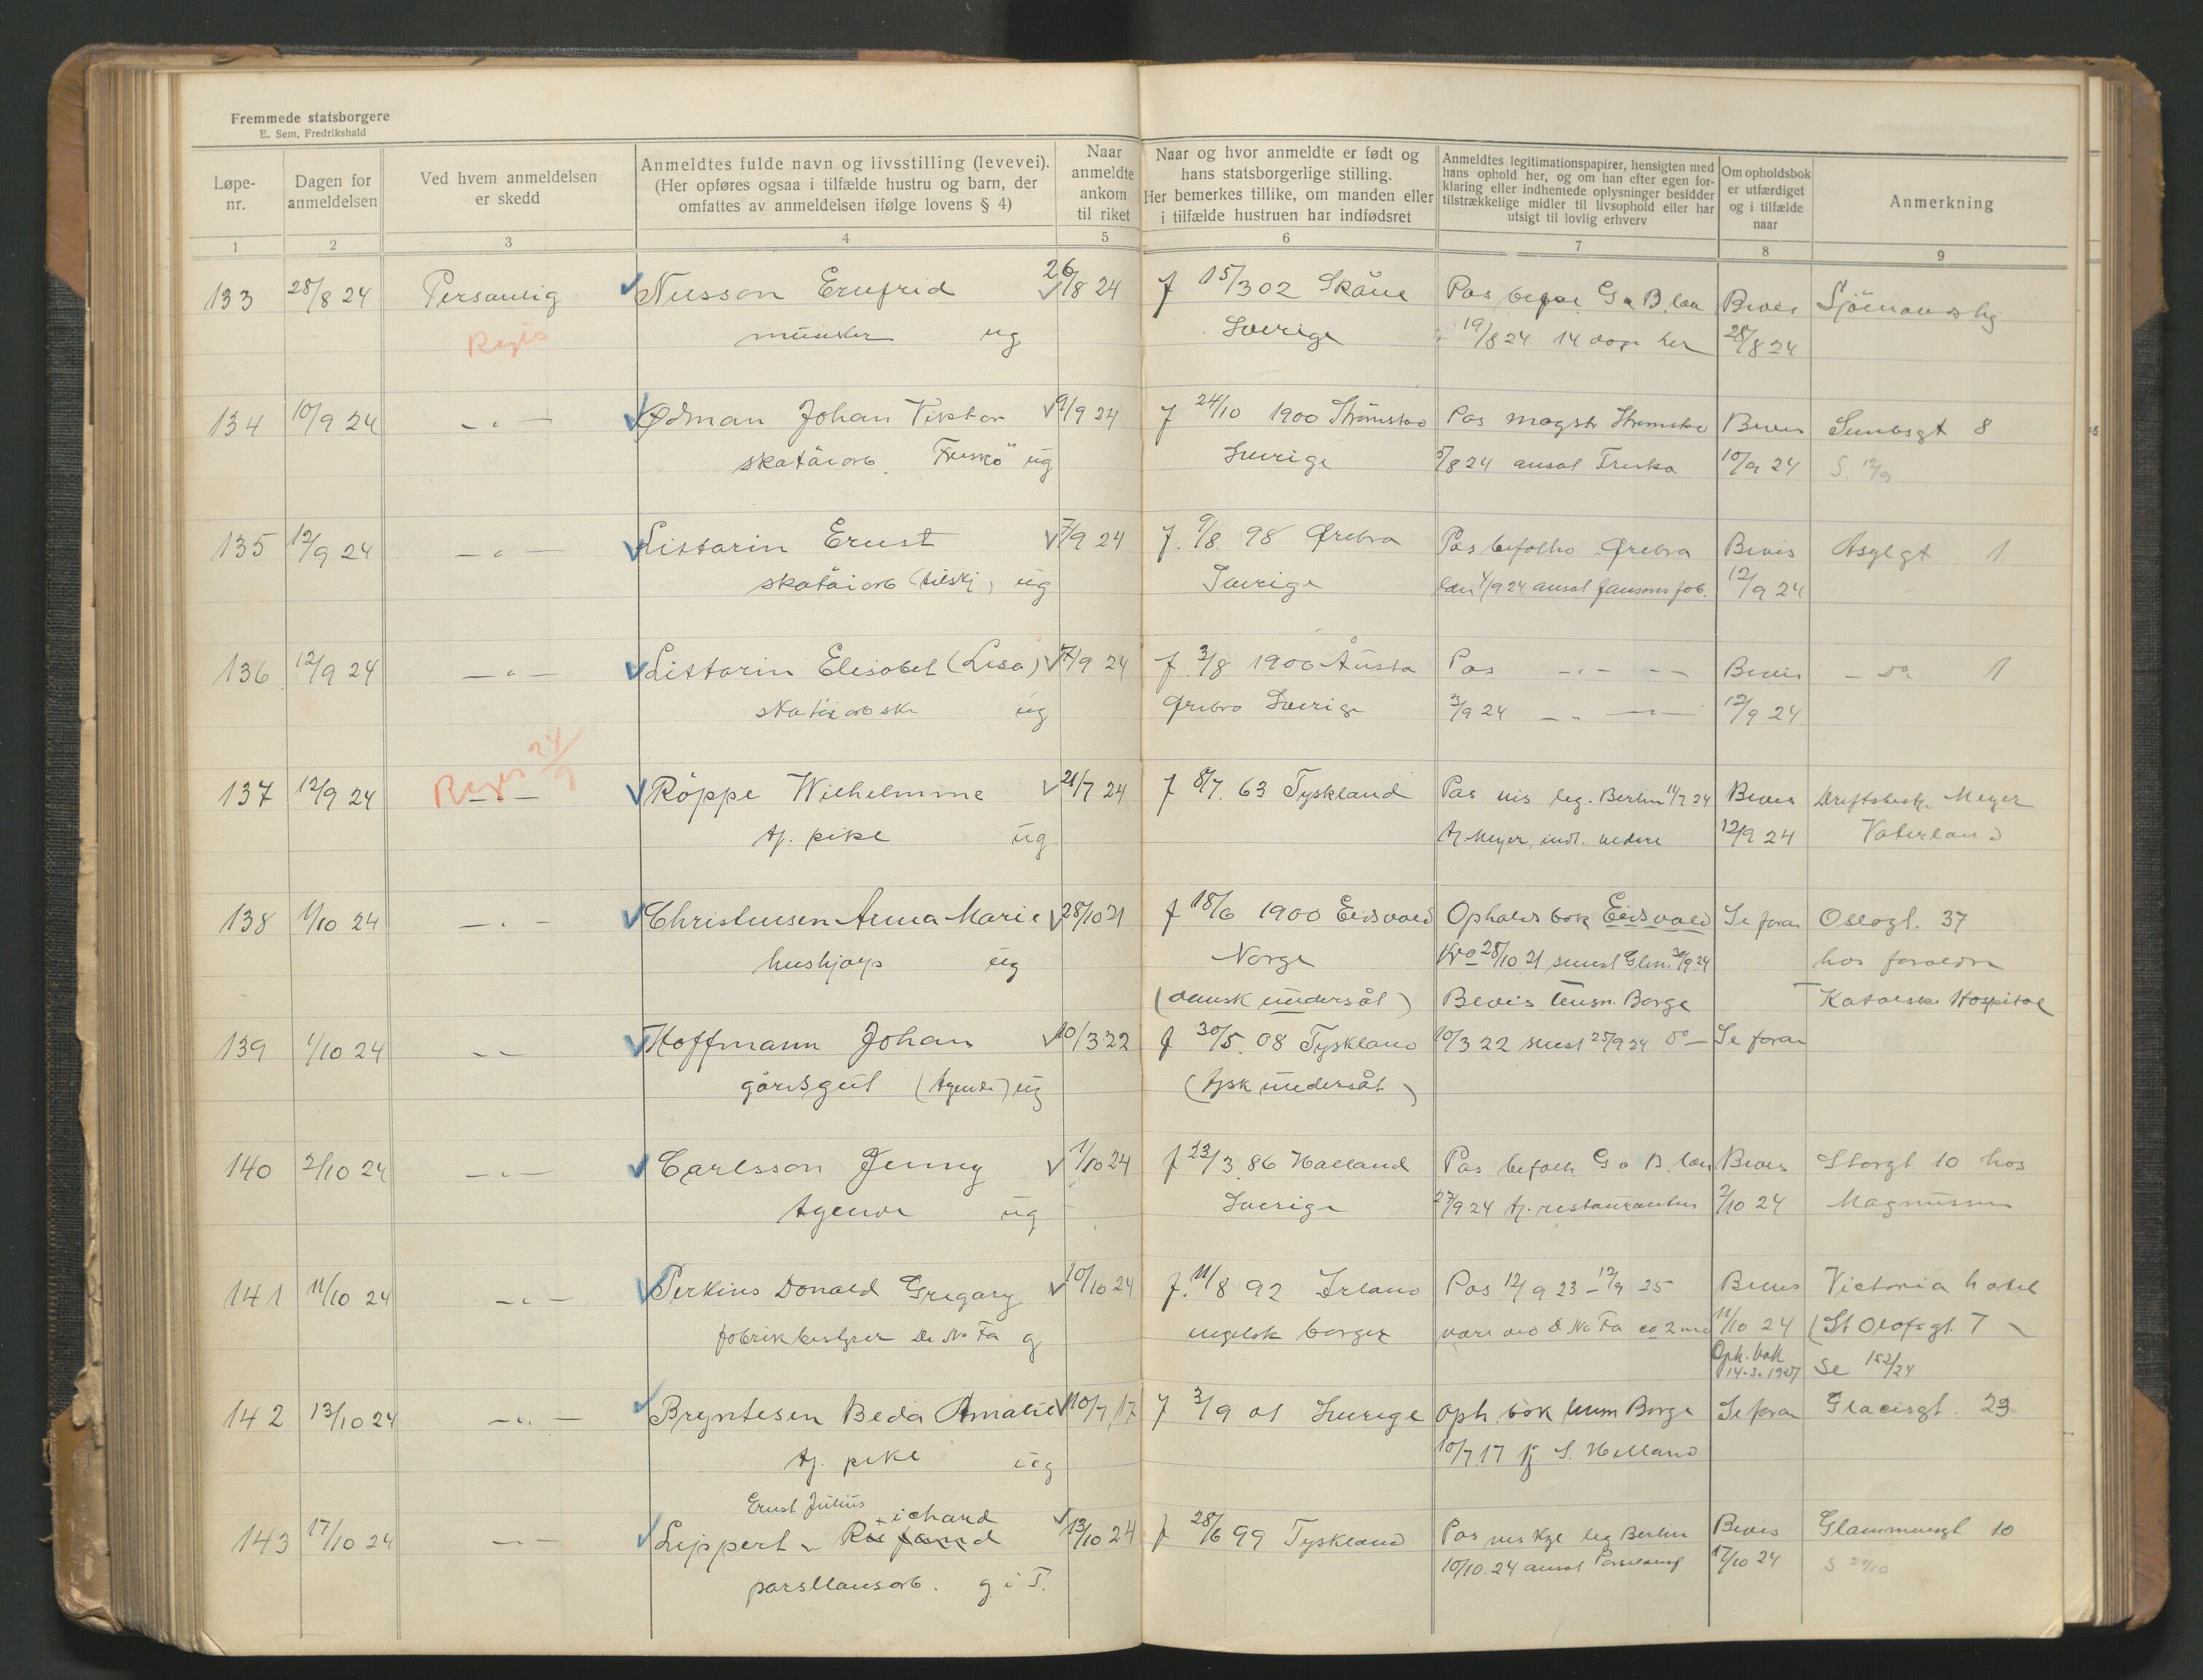 Fremmede statsborgere
E. Sem, Fredrikshald
Løpe-nr.
Dagen for anmeldelsen
Ved hvem anmeldelsen er skedd
Anmeldtes fulde navn og livsstilling (levevei).
(Her opføres ogsaa i tilfælde hustru og barn, der
omfattes av anmeldelsen ifølge lovens § 4)
Naar anmeldte ankom til riket
Naar og hvor anmeldte er født og
hans statsborgerlige stilling.
Her bemerkes tillike, om manden eller
i tilfælde hustruen har indfødsret
Anmeldtes legitimationspapirer, hensigten med
hans ophold her, og om han efter egen for-
klaring eller indhentede oplysninger besidder
tilstrækkelige midler til livsophold eller har
utsigt til lovlig erhverv
Om opholdsbok
er utfærdiget
og i tilfælde
naar
Anmerkning
1 2 3 4 5 6 7 8 9
133 28/8 24 Personlig Nilsson Ernfrid 26/8 24 f 15/3 02 Skåne Pas G o B. län Bevis
Regis ug Sverige 19/8 24 14 dage her 28/8 24
134 10/9 24 - " - Ødman Johan Viktor 9/9 24 f 24/10 1900 Strömstad Pas magstr Strømstad Bevis gt 8
skotöiarb. "Tresko" ug Sverige 5/8 24 ansat Tresko 10/9 24 S. 12/9
135 12/9 24 - " - Listarin Ernst 7/9 24 f. 9/8 98 Ørebro Pas befolkn Ørebro Bevis Asylgt 1
skotöiarb (tilskj) ug Sverige län 4/9 24 ansat Jansons fab. 12/9 24
136 12/9 24 - " - Listarin Elisabet (Lisa) 7/9 24 f 3/8 1900 Ørebro Sverige Pas - " - Bevis - do 1
skotöiarbske ug 3/9 24 - " - 12/9 24
137 12/9 24 - " - Regis 24/9 Röppe Wilhelmine 21/7 24 f 8/7. 63 Tyskland Pas vis leg. Berlin 11/7 24 Bevis Driftsbest. Meyer
tj. pike ug. tj Meyer, indt. videre 12/9 24 Vaterland
138 1/10 24 - " - Christensen Anna Marie 28/10 21 f 18/6 1900 Eidsvold Opholds bok Eidsvold Se foran Oslogt. 37
hushjælp ug Norge No 28/10 21 senest Glem. 30/9 24 hos foreldre
(dansk undersåt) Bevis lensm. Borge Katolske Hospital
139 1/10 24 - " - Hoffmann Johan 10/3 22 f 30/5. 08 Tyskland 10/3 22 senest 25/9 24 do - Se foran
gårdsgut (tyende) ug (tysk undersåt)
140 2/10 24 - " - Carlsson Jenny 1/10 24 f 23/3 86 Halland Pas befolk G o B. län Bevis Storgt 10 hos
tyende ug Sverige 27/9 24 tj. restauranten 2/10 24 Magnussen
141 11/10 24 - " - Perkins Donald Gregory 10/10 24 f. 11/8 92 Irland Pas 12/9 23 - 12/9 25 Bevis Victoria hotel
fabrikbestyrer De No Fa g engelsk borger være ved D No Fa ca 2 md 11/10 24 (St Olofsgt. 7
Oph. bok 14-3. 1927 Se 152/24
142 13/10 24 - " - Bryntesen Beda Amalie 10/7, 17 f 3/9 01 Sverige Oph bok lensm Borge Se foran Glacisgt. 23
tj. pike ug 10/7 17 tj. S. Helland
143 17/10 24 - " - Ernst Julius Richard
Lippert 13/10 24 f 28/6 99 Tyskland Pas vis Kgl leg Berlin Bevis Glemmengt 10
porsllansarb. g. i T. 10/10. 24 ansat Porselensf 17/10 24